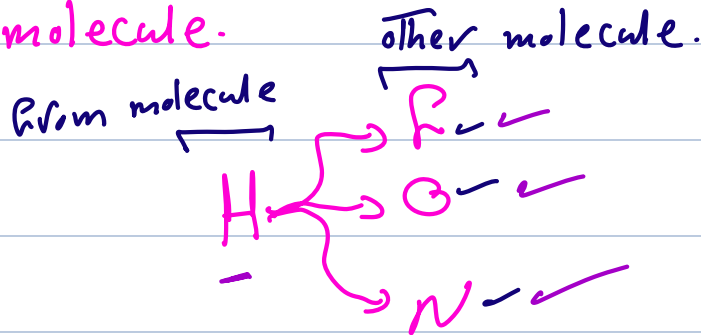 molecule.
other molecule.
from molecule
F
H O
N